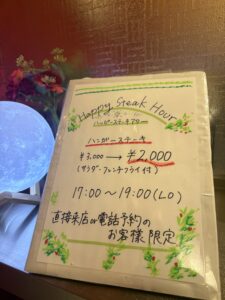 Happy Steak Hour
ハッピーステーキアワー
ハンガーステーキ
¥3,000 → ¥2,000
(サラダ・フレンチフライ付)
17:00〜19:00(LO)
直接来店or電話予約の
お客様限定